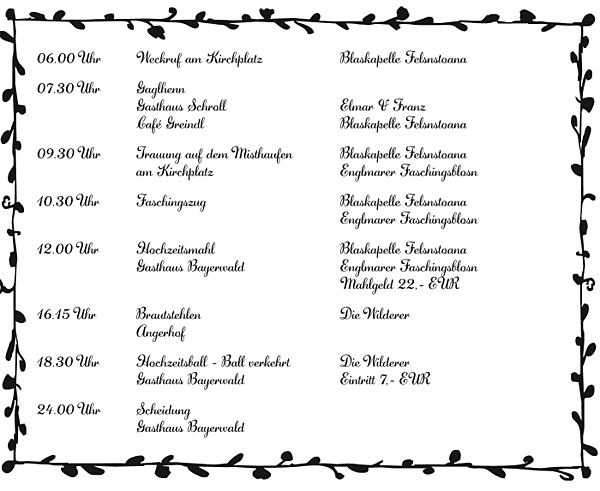 06.00 Uhr Weckruf am Kirchplatz Blaskapelle Felsnstoana
07.30 Uhr Gaglhenn
Gasthaus Schroll Elmar & Franz
Café Greindl Blaskapelle Felsnstoana
09.30 Uhr Trauung auf dem Misthaufen Blaskapelle Felsnstoana
am Kirchplatz Englmarer Faschingsblosn
10.30 Uhr Faschingszug Blaskapelle Felsnstoana
Englmarer Faschingsblosn
12.00 Uhr Hochzeitsmahl Blaskapelle Felsnstoana
Gasthaus Bayerwald Englmarer Faschingsblosn
Mahlgeld 22,- EUR
16.15 Uhr Brautstehlen Die Wilderer
Angerhof
18.30 Uhr Hochzeitsball - Ball verkehrt Die Wilderer
Gasthaus Bayerwald Eintritt 7,- EUR
24.00 Uhr Scheidung
Gasthaus Bayerwald